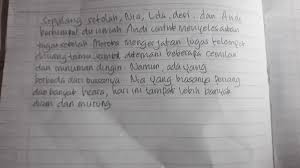 Sepulang sekolah, Nia, Lda, desi, dan Andi
berkumpul di rumah Andi untuk menyelesaikan
tugas sekolah Mereka mengerjakan tugas kelompok
diruang tamu sambil ditemani beberapa cemilan
dan minuman dingin Namun, ada yang
berbeda dari biasanya Nia yang biasanya periang
dan banyak bicara, hari ini tampak lebih banyak
diam dan murung